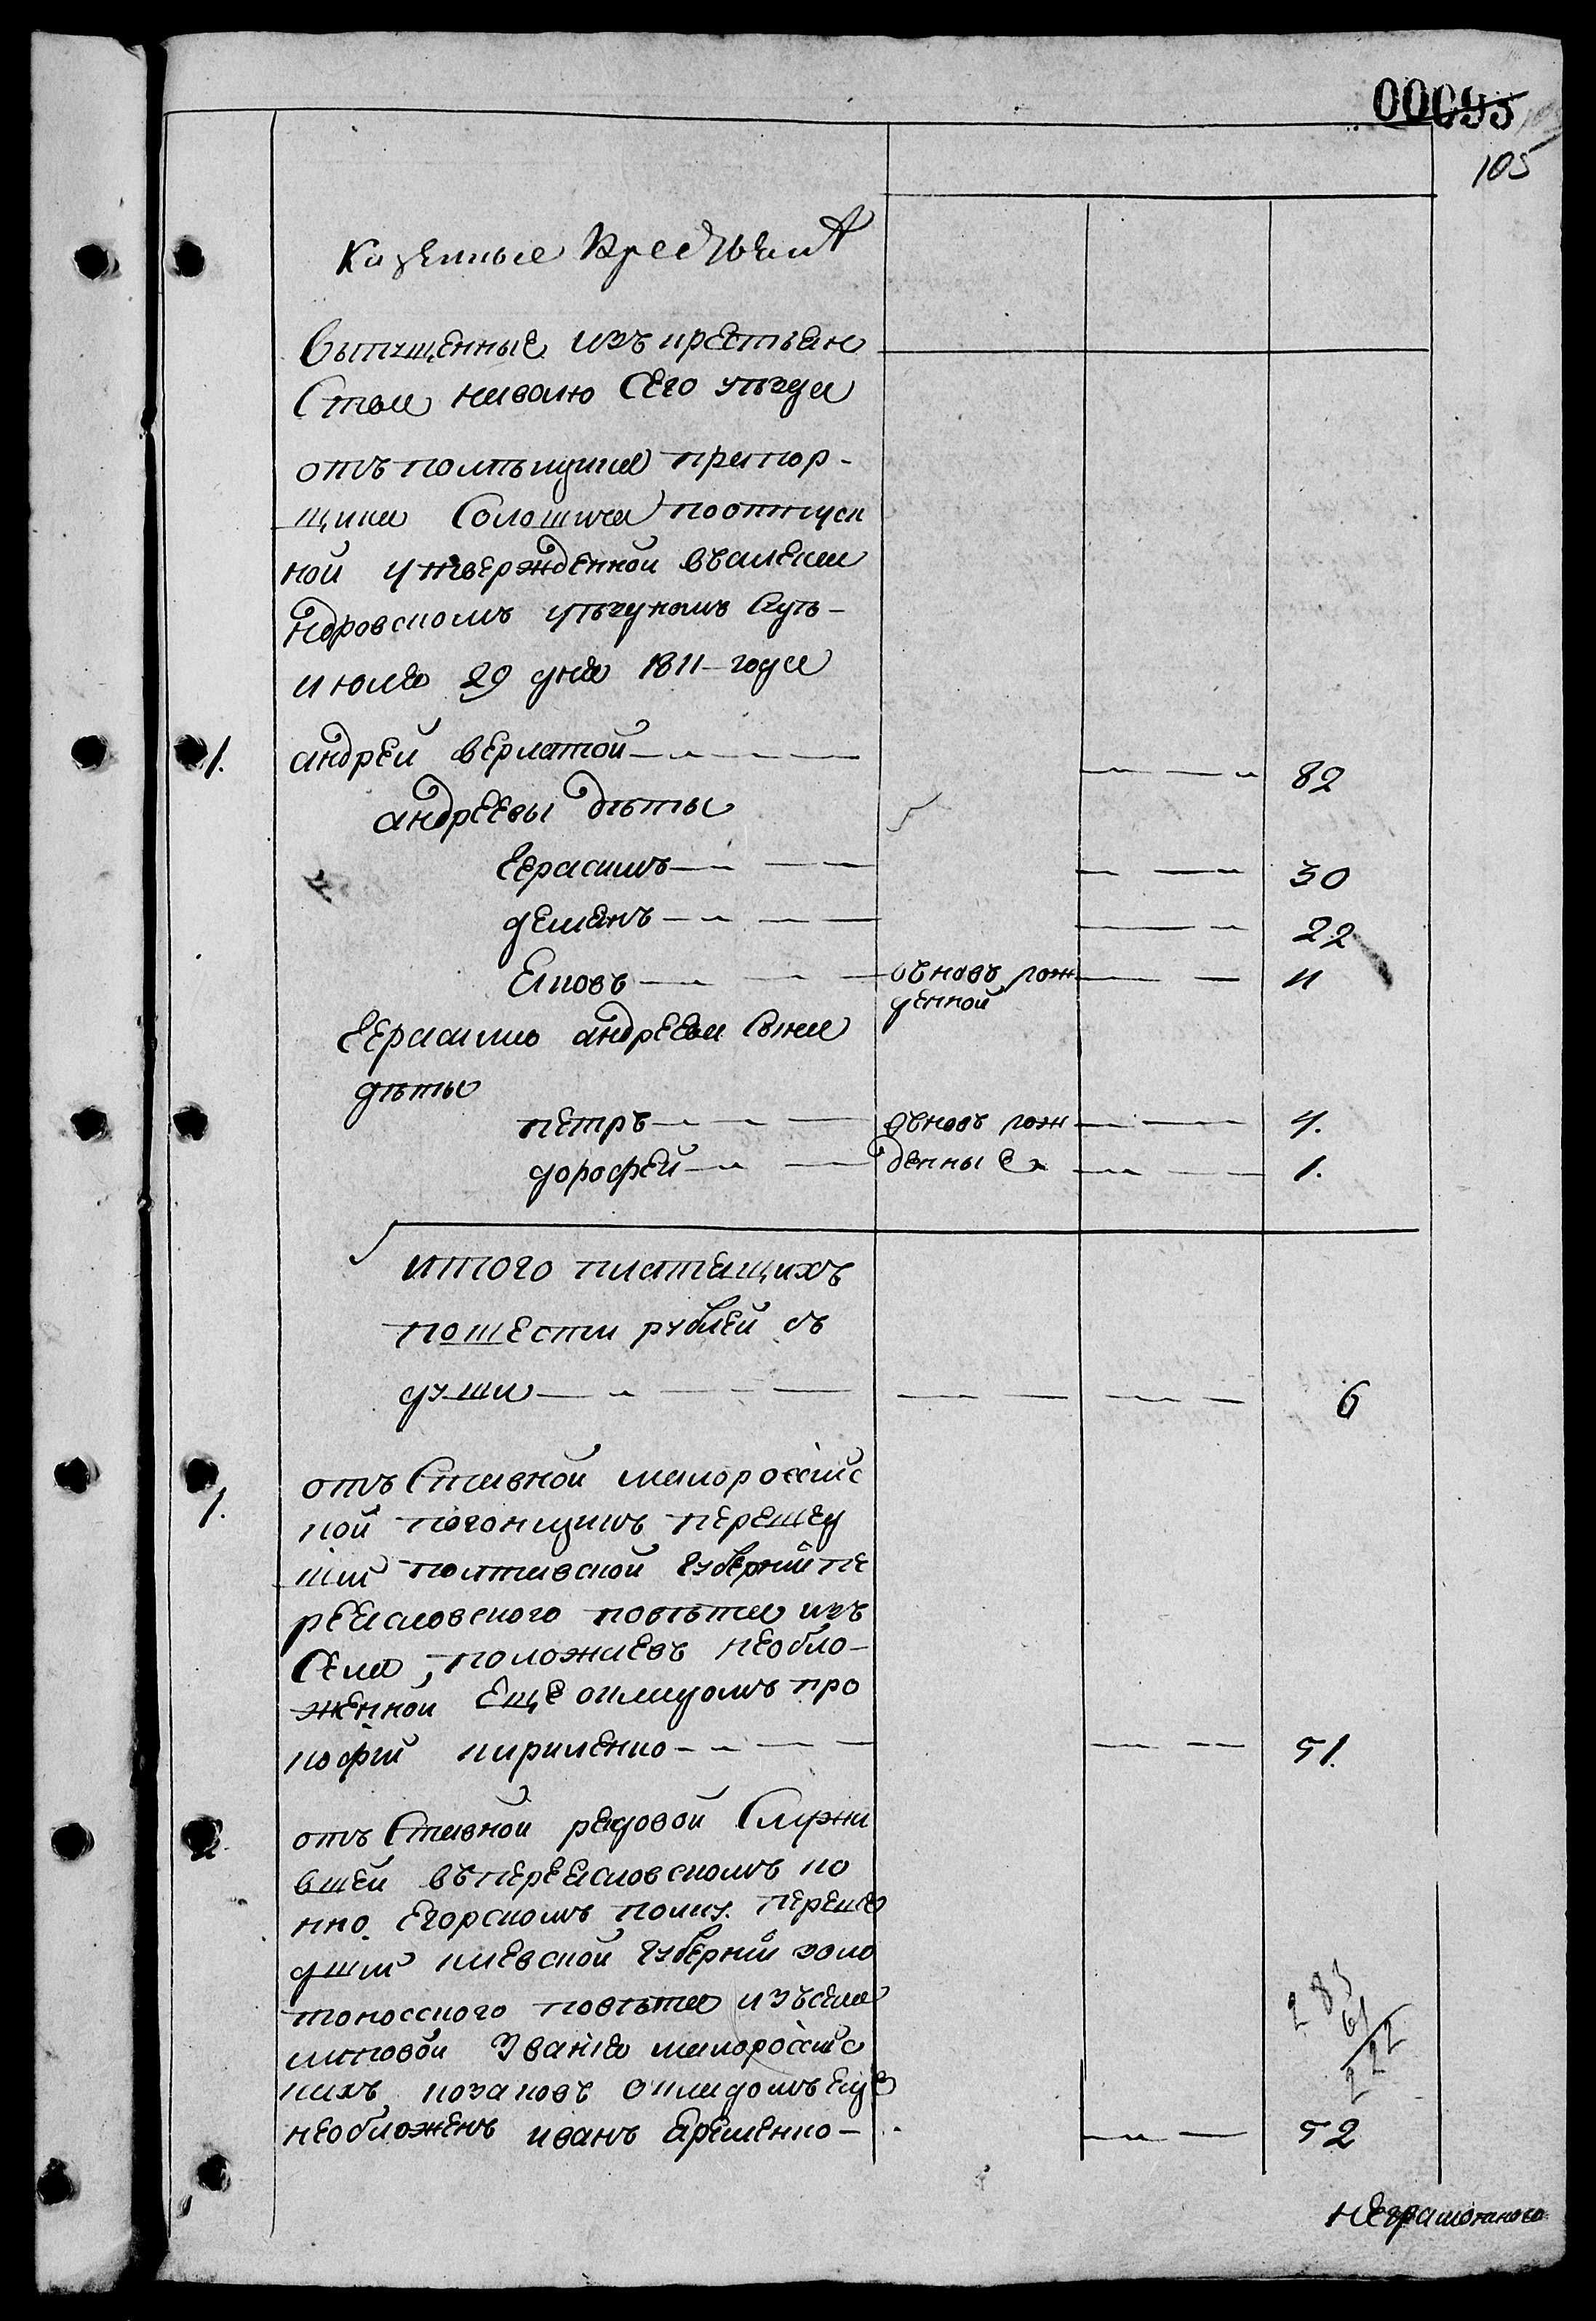 00095
105
Казенные Крестьянѣ
Выпущенные изъ крестьян
Стол неволю Сего уѣзда
отъ помѣщика прапор-
щика Солошича поотпуск
ной утвержденной въалекса
ндровскомъ уѣздномъ Судѣ-
июля 29 дня 1811-года
1. андрей верлатой 82
андреевы дѣты
Герасимъ 30
демянъ 22
Яковъ вьновь рож
денной 11
Герасима андреева Сына
дѣты
петръ вьновь рож 4.
дорофей денные 1.
итого платящихъ
пошести рублей съ
души 6
1. отъ Ставной малороссійс
кой погонщикъ перешед
шій полтавской губерній пе
реясловского повѣта изъ
Села, положаевъ необло-
женной еще окладомъ про
кофій кириленко 51.
2 отъ Ставной редовой Служи
вшей въпереясловскомъ ко
нно егорскомъ полку. переше
дшій киевской губерній золо
тоноского повѣта изъсела
липовой Званія малороссійс
кихъ козаковъ окладомъ еще
необложенъ иванъ Яременко- 52
283
61
222
неграмотного